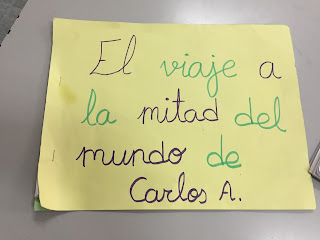 El viaje a
la mitad del
mundo de
Carlos A.